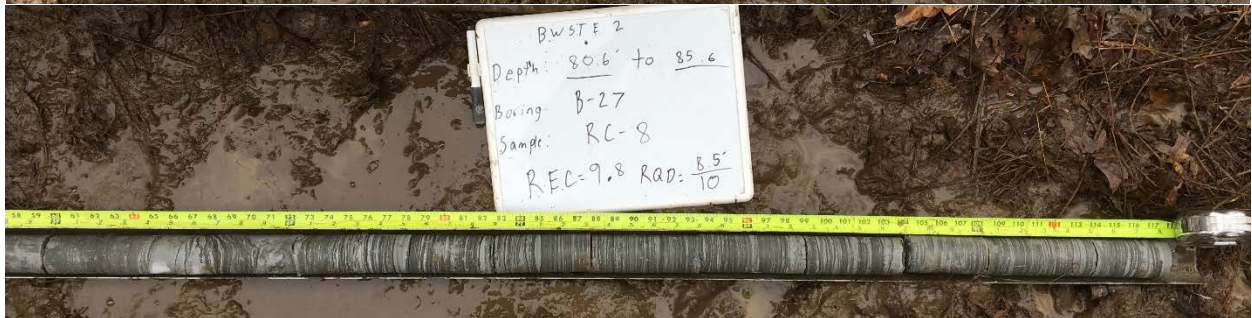 BWSTE 2
Depth: 80.6' to 85.6
Boring B-27
Sample: RC-8
REC=9.8 RQD= 8.5'
10
58 59 60 61 62 63 65 66 67 68 69 70 71 73 74 75 76 77 78 79 81 82 83 85 86 87 88 89 90 91 92 93 94 95 97 98 99 100 101 102 103 104 105 106 107 109 110 111 113 114 115 116 117